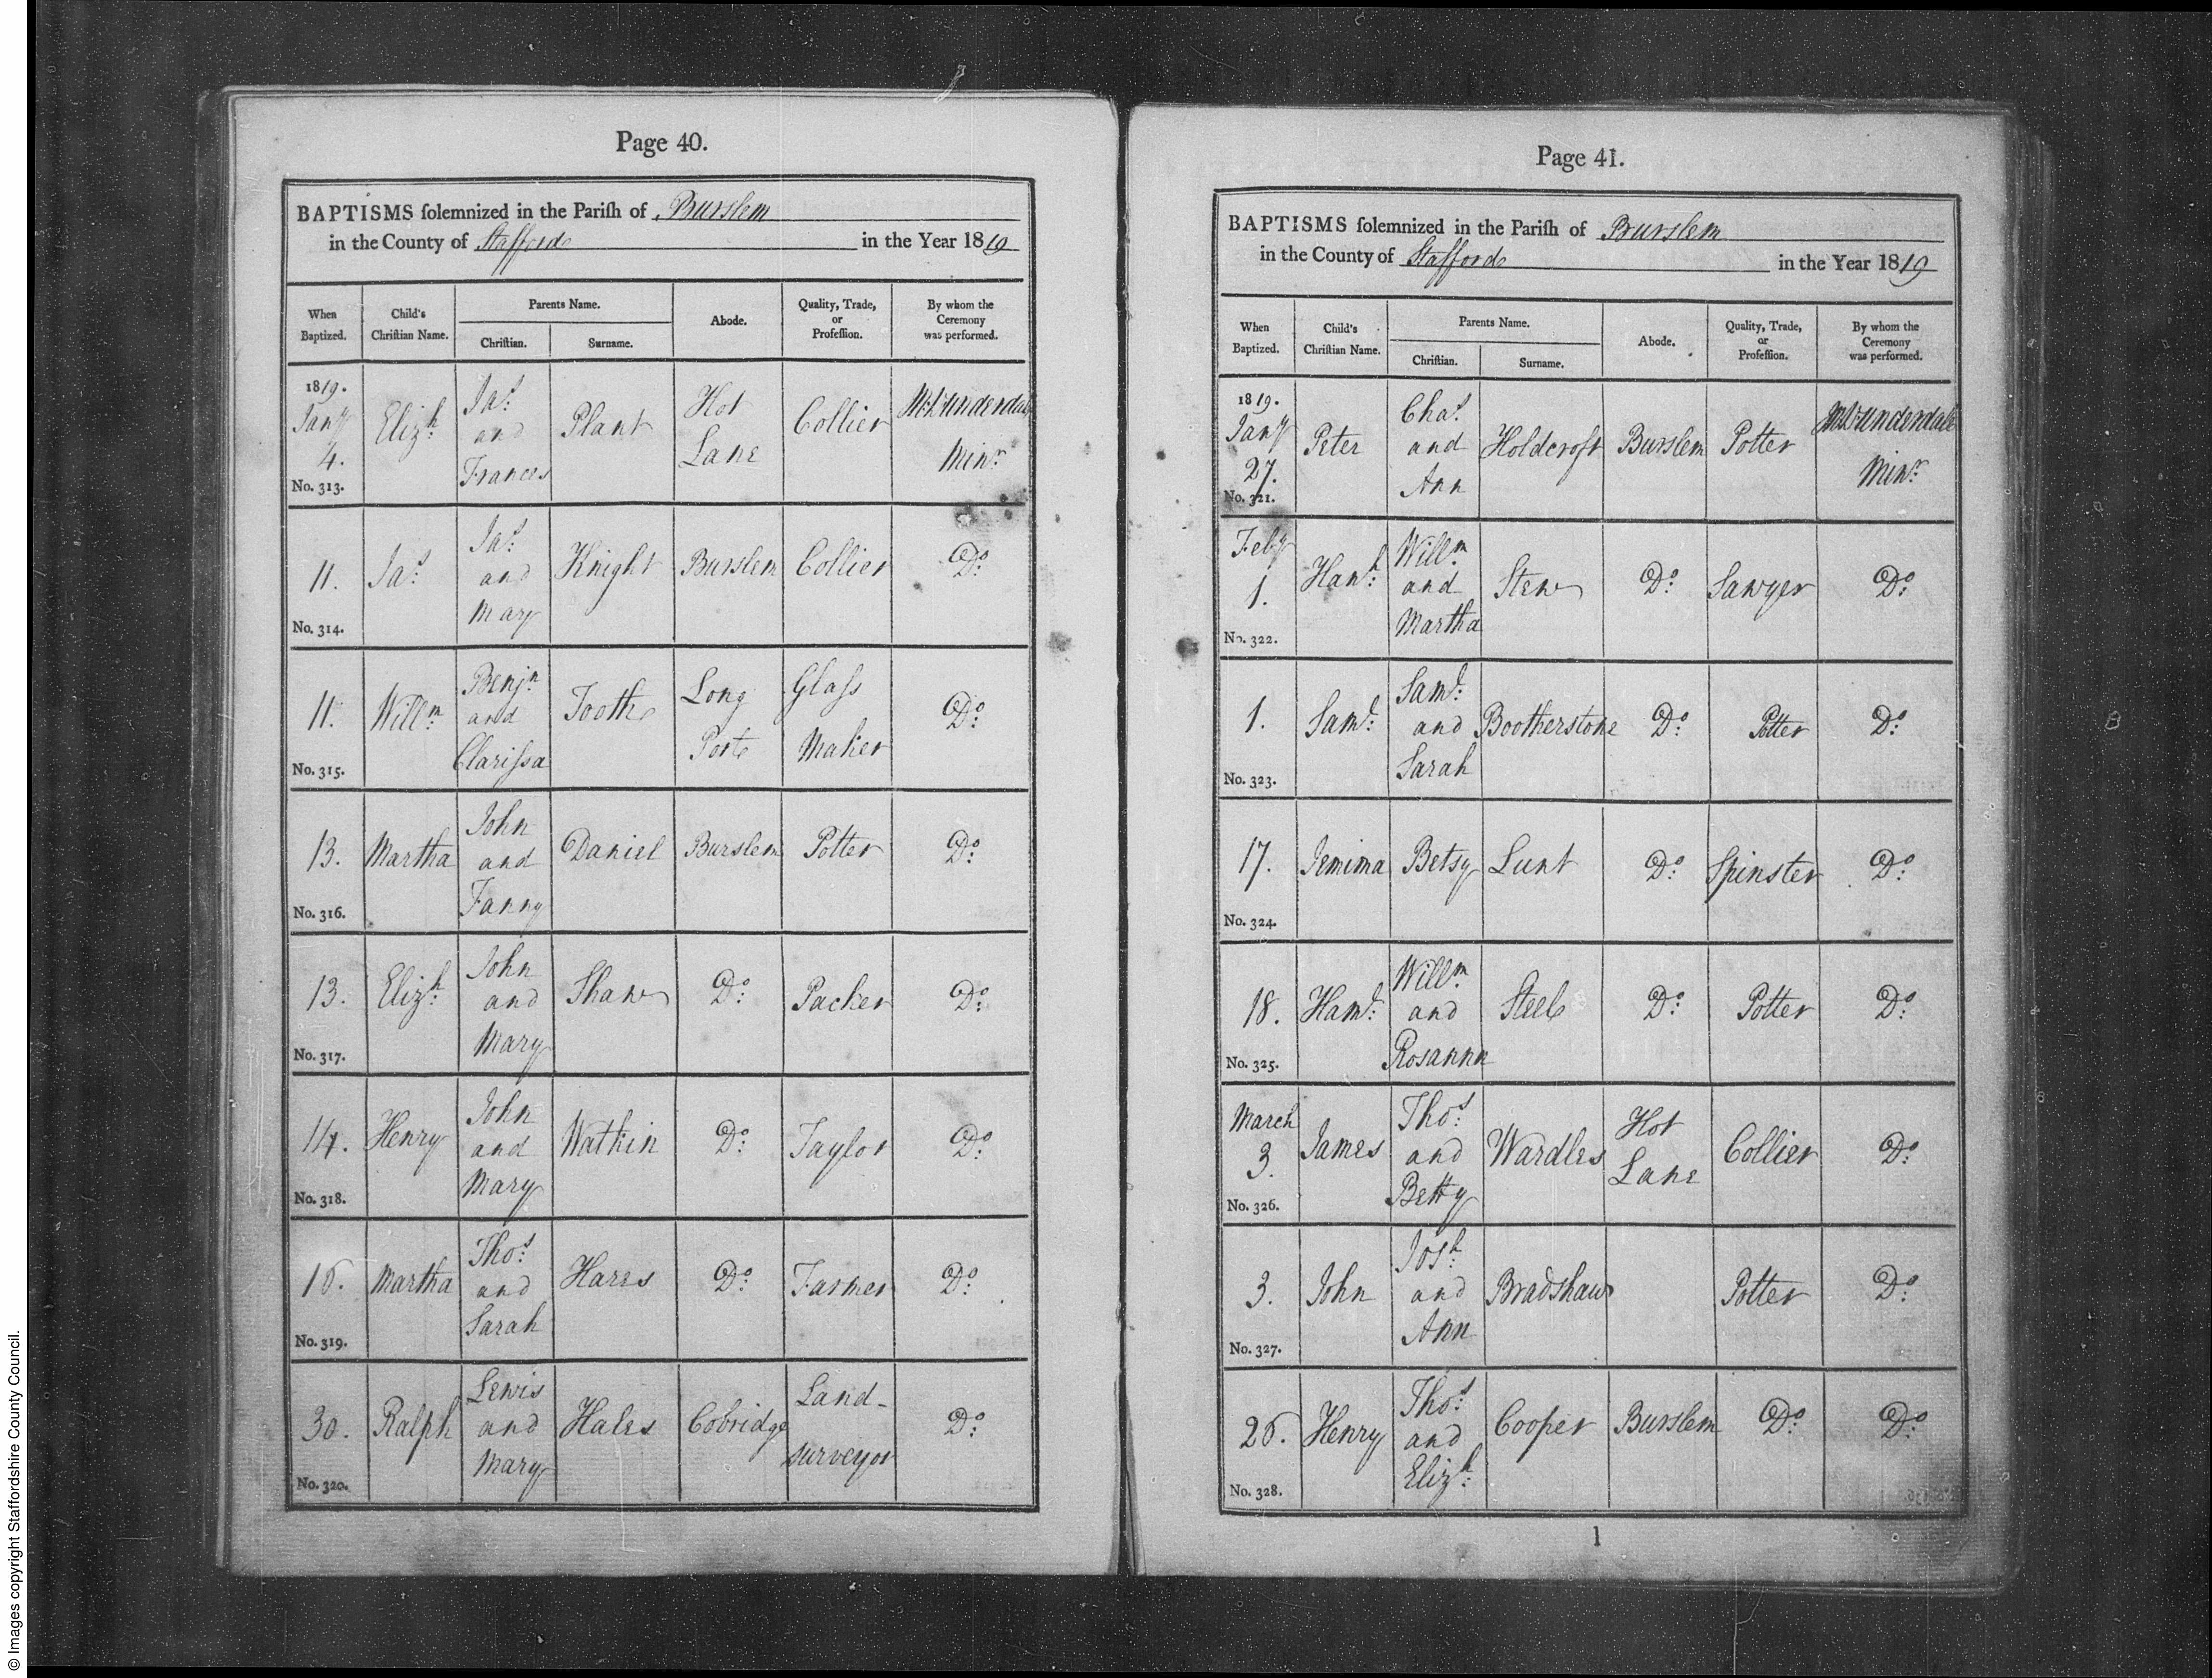 Page 40.
BAPTISMS solemnized in the Parish of Burslem
in the County of Stafford in the Year 1819
When Baptized. Child's Christian Name. Parents Name. Christian. Surname. Abode. Quality, Trade, or Profession. By whom the Ceremony was performed.
1819. Jany 4. No. 313. Elizh: Jas: and Frances Plant Hot Lane Collier Minr
11. No. 314. Jas: Jas: and Mary Knight Burslem Collier Do:
11. No. 315. Willm Benjn and Clarissa Tooth Long Port Glass Maker Do:
13. No. 316. Martha John and Fanny Daniel Burslem Potter Do:
13. No. 317. Elizh: John and Mary Shaw Do: Packer Do:
14. No. 318. Henry John and Mary Watkin Do: Taylor Do:
No. 319. Martha Thos: and Sarah Hares Do: Farmer Do:
30. No. 320. Ralph Lewis and Mary Hales Cobridge Land-surveyor Do:
Page 41.
BAPTISMS solemnized in the Parish of Burslem
in the County of Stafford in the Year 1819
When Baptized. Child's Christian Name. Parents Name. Christian. Surname. Abode. Quality, Trade, or Profession. By whom the Ceremony was performed.
1819. Jany 27. No. 321. Peter Chas: and Ann Holdcroft Burslem Potter Minr
Feby 1. No. 322. Hanh: Willm: and Martha Stew Do: Sawyer Do:
1. No. 323. Saml: Saml: and Sarah Bootherstone Do: Potter Do:
17. No. 324. Jemima Betsy Lunt Do: Spinster Do:
18. No. 325. Haml: Willm: and Rosanna Steel Do: Potter Do:
March 3. No. 326. James Thos: and Betty Wardles Hot Lane Collier Do:
3. No. 327. John Josh: and Ann Bradshaw Potter Do:
No. 328. Henry Thos: and Elizh: Cooper Burslem Do: Do:
1
© Images copyright Staffordshire County Council.